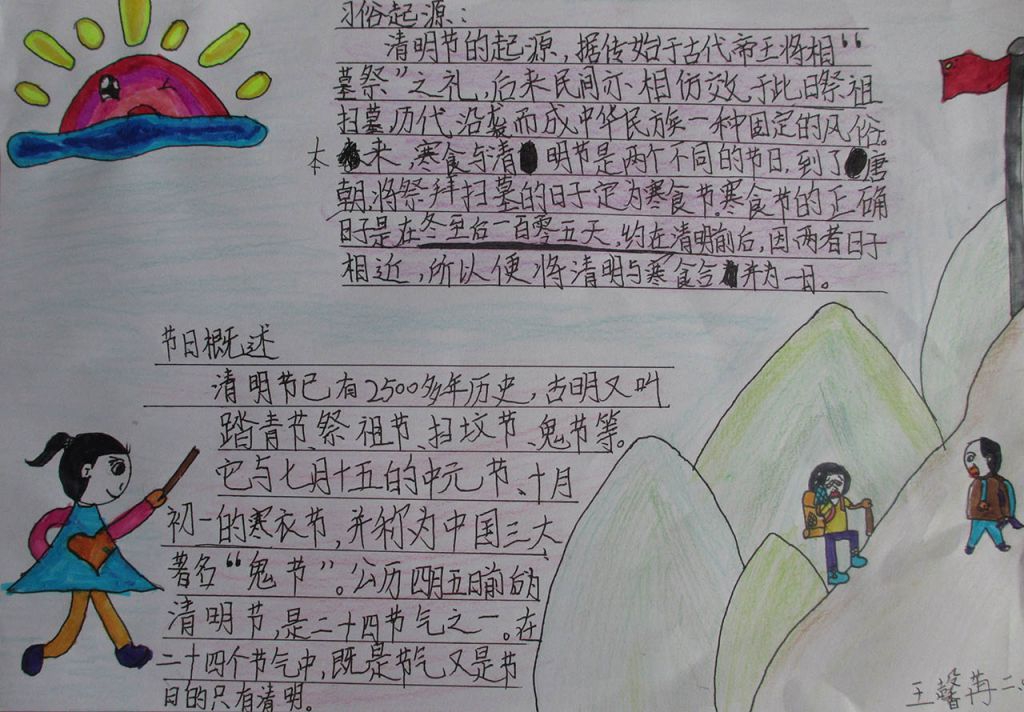 习俗起源：
清明节的起源，据传始于古代帝王将相“
墓祭”之礼，后来民间亦相仿效于此日祭祖
扫墓，历代沿袭而成中华民族一种固定的风俗。
本来寒食与清明节是两个不同的节日，到了唐
朝，将祭拜扫墓的日子定为寒食节。寒食节的正确
日子是在冬至后一百零五天，约在清明前后，因两者日子
相近，所以便将清明与寒食合并为一日。
节日概述
清明节已有2500多年历史，古明又叫
踏青节、祭祖节、扫坟节、鬼节等。
它与七月十五的中元节、十月
初一的寒衣节，并称为中国三大
著名“鬼节”。公历四月五日前的
清明节，是二十四节气之一。在
二十四个节气中，既是节气又是节
日的只有清明。
王馨苒二